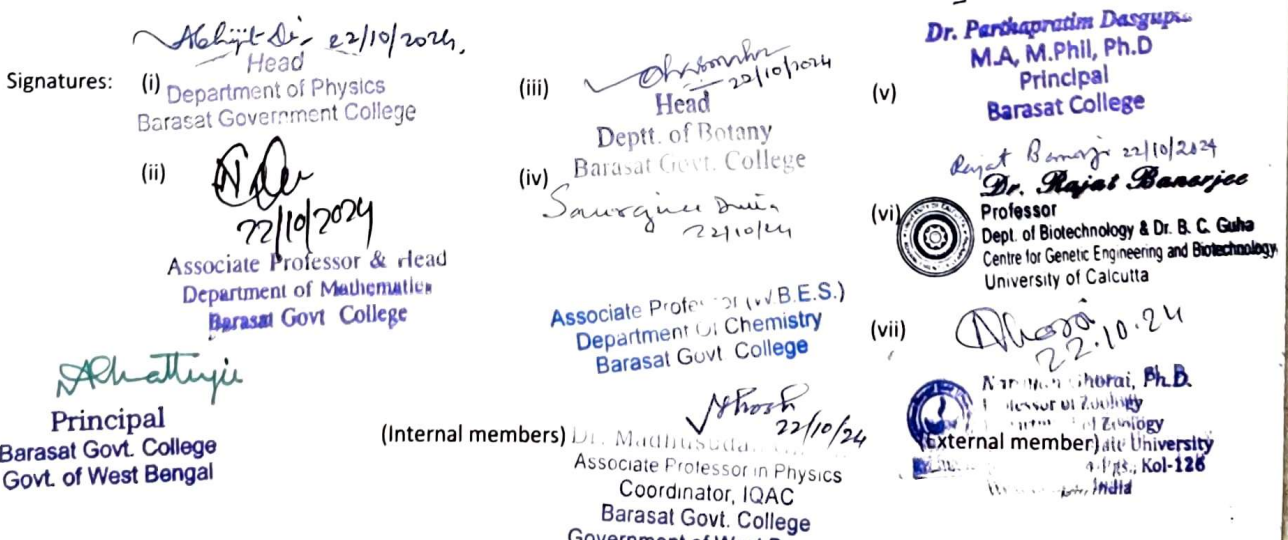 Signatures:
(i)
22/10/2024
Head
Department of Physics
Barasat Government College
(ii)
22/10/2024
Associate Professor & Head
Department of Mathematics
Barasat Govt College
Principal
Barasat Govt. College
Govt. of West Bengal
(iii)
22/10/2024
Head
Deptt. of Botany
Barasat Govt. College
(iv)
22/10/24
Associate Professor (W.B.E.S.)
Department Of Chemistry
Barasat Govt College
(Internal members)
22/10/24
Dr.
Associate Professor in Physics
Coordinator, IQAC
Barasat Govt. College
Government of West
(v)
Dr. Parthapratim Dasgupta
M.A, M.Phil, Ph.D
Principal
Barasat College
(vi)
Rajat Banerjee 22/10/2024
Dr. Rajat Banerjee
Professor
Dept. of Biotechnology & Dr. B. C. Guha
Centre for Genetic Engineering and Biotechnology
University of Calcutta
(vii)
22.10.24
Ghorai, Ph.D.
Professor of Zoology
of Zoology
(External member) State University
Kol-126
India